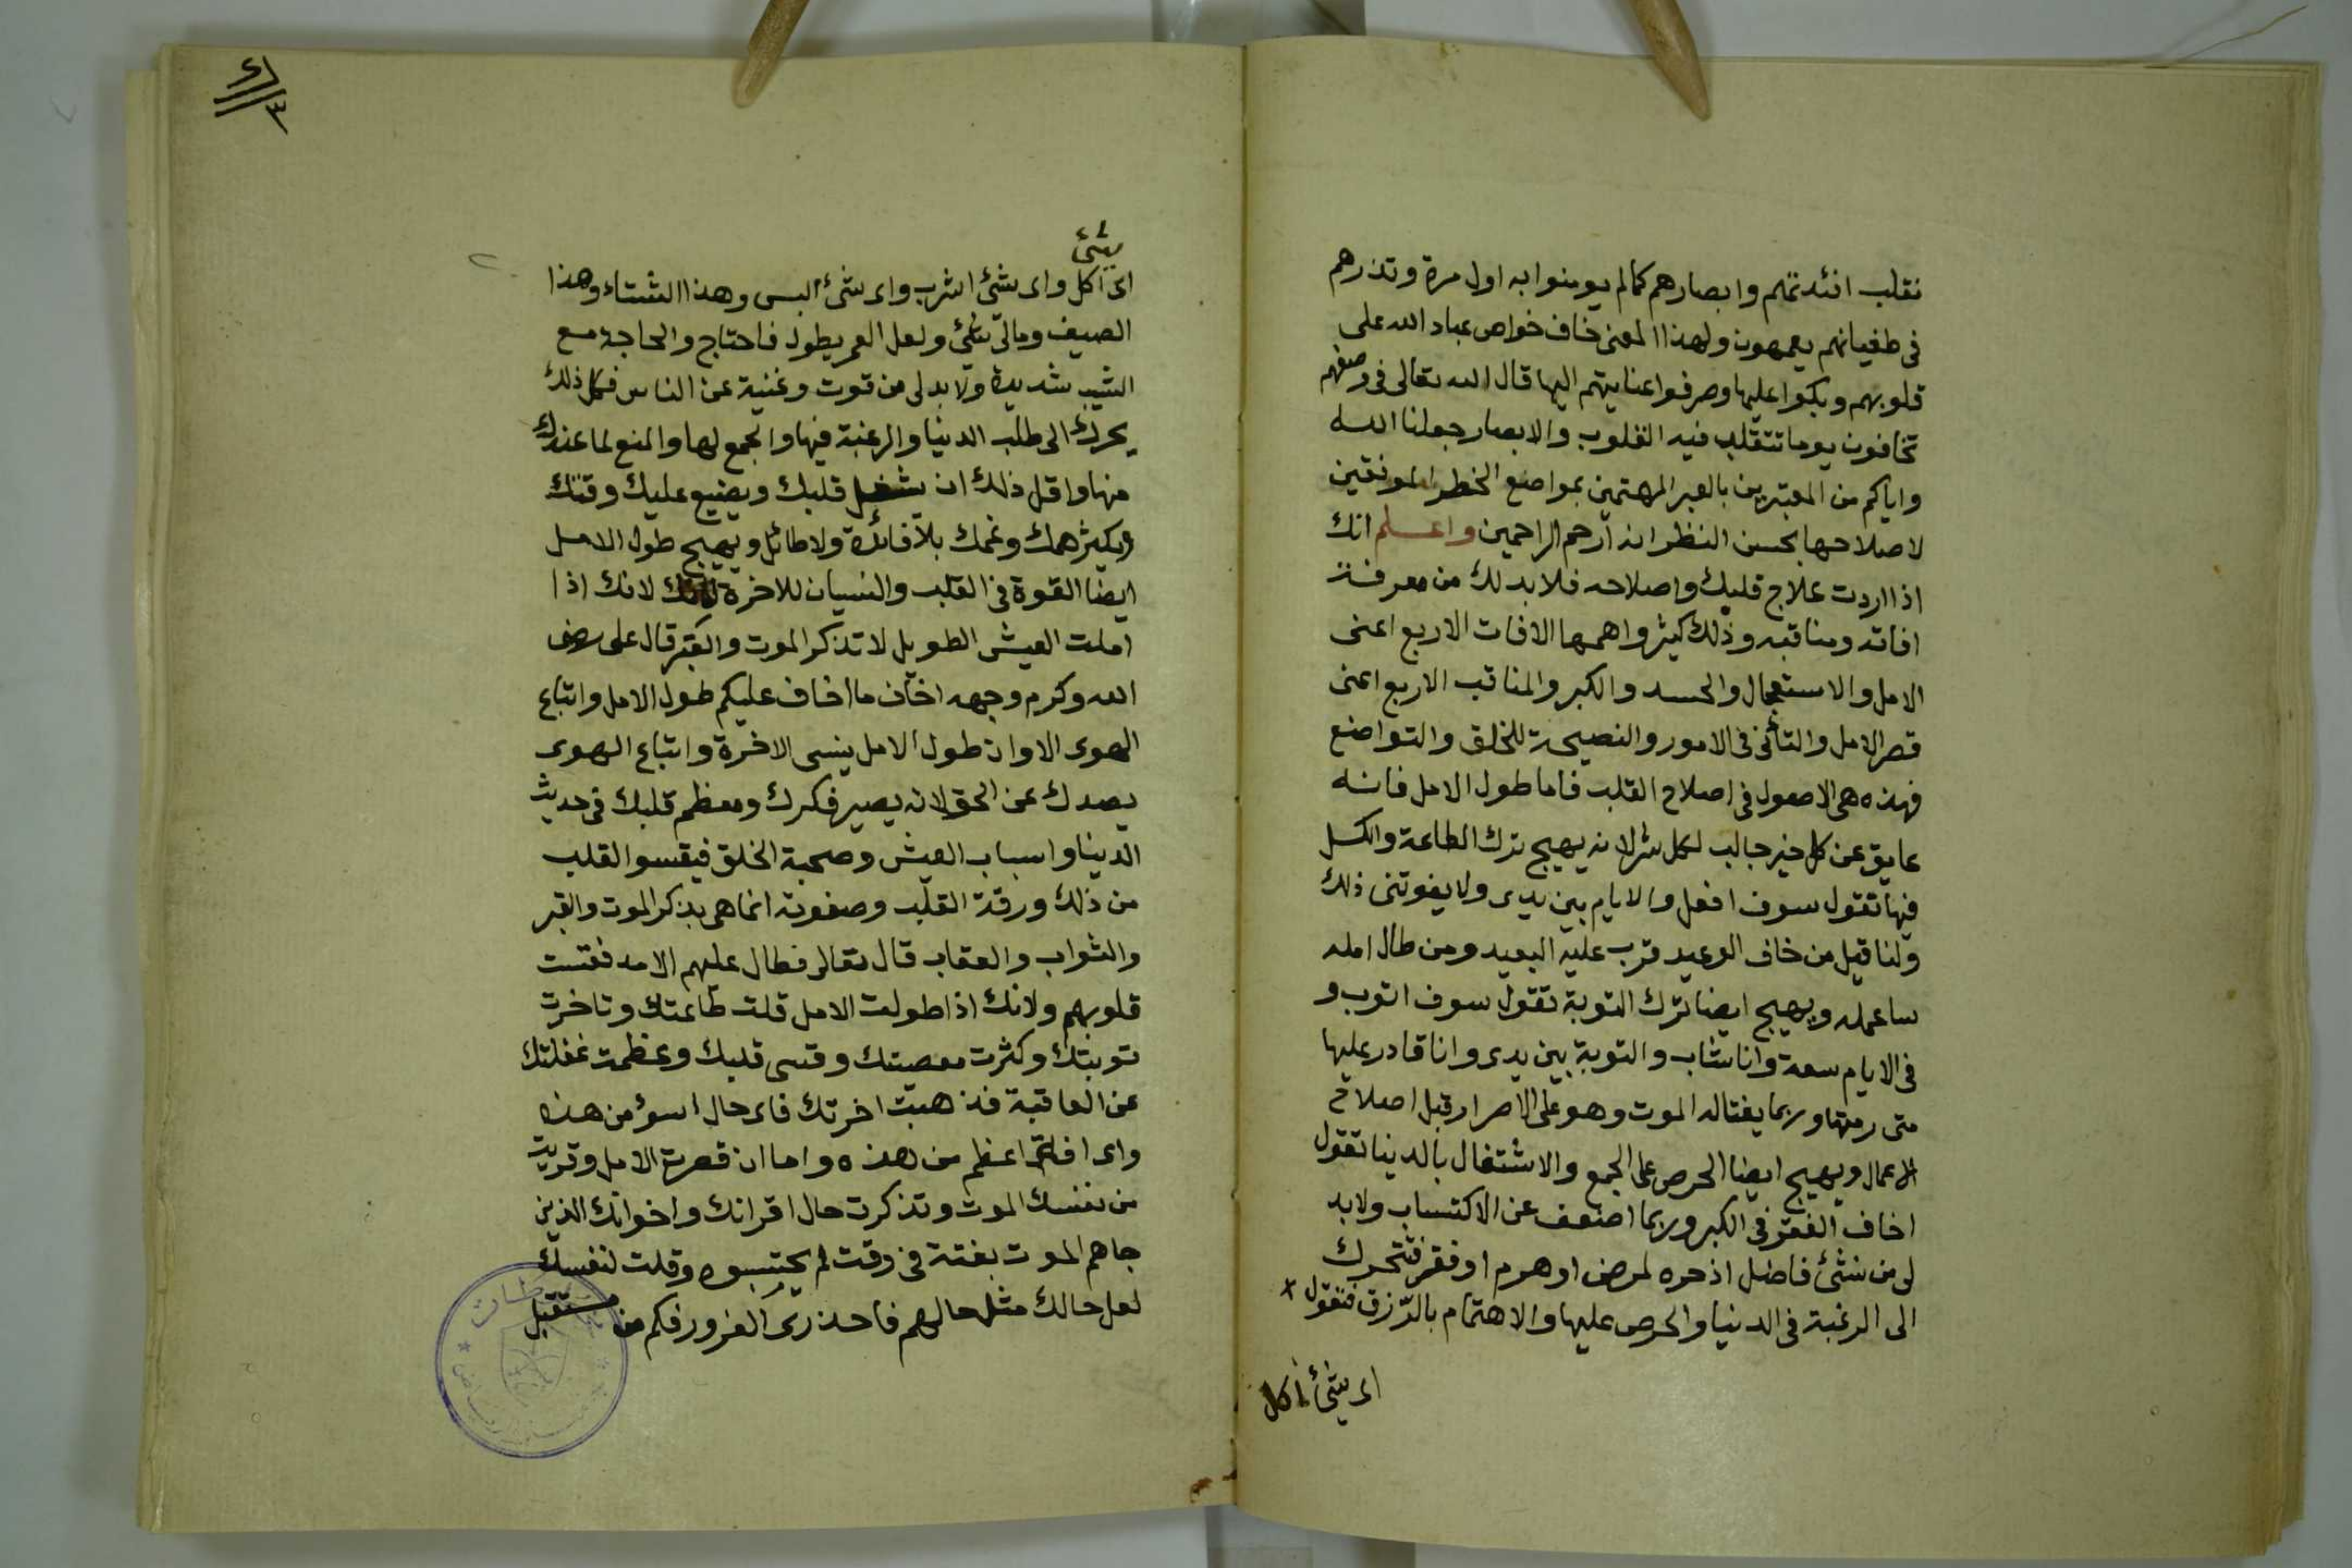 نقلب افئدتهم وابصارهم كمالم يومنوا به اول مرة وتذرهم
فى طغيانهم يعمهون ولهذا المعنى خاف خواص عباد الله على
قلوبهم وبكوا عليها وصرفوا عنايتهم اليها قال الله تعالى فى وصفهم
تخافون يوما تتقلب فيه القلوب والابصار جعلنا الله
واياكم من المعتبرين بالعبر المهتمين بمواضع الخطر الموفقين
لاصلاحها بحسن النظر انه ارحم الراحمين واعلم انك
اذا اردت علاج قلبك واصلاحه فلا بد لك من معرفة
افاته ومناقبه وذلك كثير واهمها الافات الاربع اعنى
الامل والاستعجال والحسد والكبر والمناقب الاربع اعنى
قصر الامل والتأنى فى الامور والنصيحة للخلق والتواضع
فهذه هى الاصول فى اصلاح القلب فاما طول الامل فانه
عايق عن كل خير جالب لكل شر لانه يهيج ترك الطاعة والكسل
فيها تقول سوف افعل والايام بين يدى ولا يفوتنى ذلك
ولنا قيل من خاف الوعيد قرب عليه البعيد ومن طال امله
ساعمله ويهيج ايضا ترك التوبة تقول سوف اتوب و
فى الايام سعة وانا شاب والتوبة بين يدى وانا قادر عليها
متى رمتها وربما يغتاله الموت وهو على الاصرار قبل اصلاح
الاعمال ويهيج ايضا الحرص على الجمع والاشتغال بالدينا تقول
اخاف الفقر فى الكبر وربما اضعف عن الاكتساب ولابد
لى من شئ فاضل اذحره لمرض او هرم او فقر فتحرك
الى الرغبة فى الدنيا والحرص عليها والاهتمام بالرزق فتقول
اى شئ اكل
٤
٣
شئ
اى اكل واى شئ اشرب واى شئ البس وهذا الشتاء وهذا
الصيف ومالى شئ ولعل العمر يطول فاحتاج والحاجة مع
الشيب شديدة ولابد لى من قوت وغنية عن الناس فكل ذلك
يحرك الى طلب الدينا والرغبة فيها والجمع لها والمنع لما عندك
منها واقل ذلك ان يشغل قلبك ويضيع عليك وقتك
ويكثر همك وغمك بلا فائدة ولا طائل ويهيج طول الامل
ايضا القوة فى القلب والنسيان للاخرة لانك اذا
املت العيش الطويل لا تذكر الموت والقبر قال على رضى
الله وكرم وجهه اخاف ما اخاف عليكم طول الامل واتباع
الهوى الا وان طول الامل ينسى الاخرة واتباع الهوى
يصدك عن الحق لانه يصير فكرك ومعظم قلبك فى حديث
الدينا واسباب العيش وصحبة الخلق فيقسو القلب
من ذلك ورقة القلب وصفوته انما هى بذكر الموت والقبر
والثواب والعقاب قال تعالى فطال عليهم الامد فقست
قلوبهم ولانك اذا طولت الامل قلت طاعتك وتاخرت
توبتك وكثرت معصيتك وقسى قلبك وعظمت غفلتك
عن العاقبة فذهبت اخرتك فاى حال اسوؤ من هذه
واى افة اعظم من هذه واما ان قصرت الامل وقربت
من نفسك الموت وتذكرت حال اقرانك واخوانك الذين
جاهم الموت بغتة فى وقت لم يحتسبوه وقلت لنفسك
لعل حالك مثل حالهم فاحذرى الغرور فكم من مستقبل